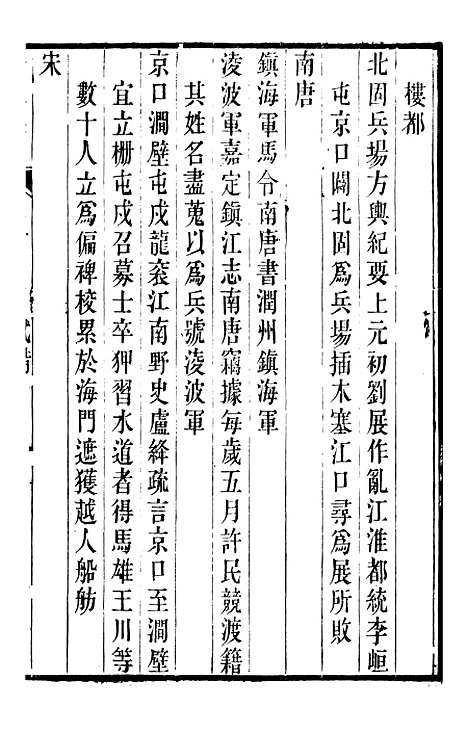 樓都
北固兵場方輿紀要上元初劉展作亂江淮都統李峘
屯京口闢北固爲兵場插木塞江口尋爲展所敗
南唐
鎮海軍馬令南唐書潤州鎮海軍
淩波軍嘉定鎮江志南唐竊據每歲五月許民競渡籍
其姓名盡蒐以爲兵號淩波軍
京口澗壁屯戍龍袞江南野史盧絳疏言京口至澗壁
宜立柵屯戍召募士卒狎習水道者得馬雄王川等
數十人立爲偏裨校累於海門遮獲越人船舫
宋